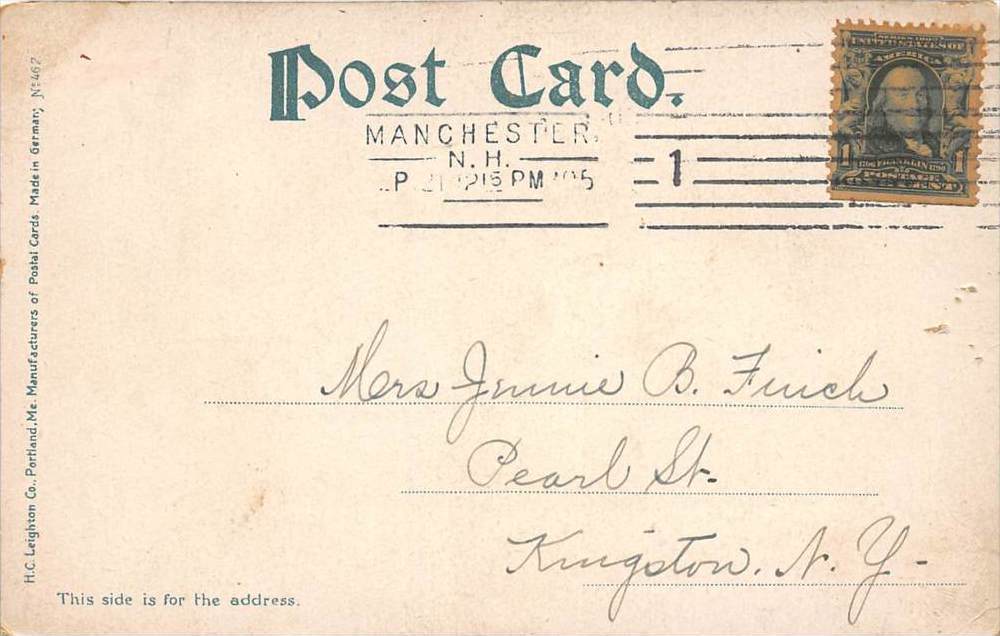 Post Card.
MANCHESTER,
N. H.
1215 PM '05
1
SERIES 1902
UNITED STATES OF
AMERICA
1 1706 FRANKLIN 1790 1
POSTAGE
ONE CENT
Mrs Jennie B. Finch
Pearl St.
Kingston. N. Y-
This side is for the address.
H.C. Leighton Co., Portland, Me. Manufacturers of Postal Cards. Made in Germany No 467